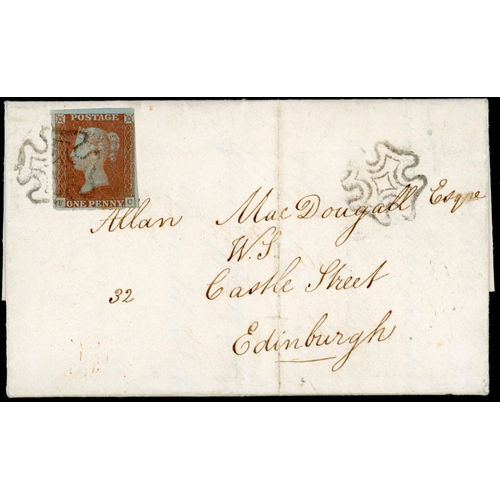 POSTAGE
ONE PENNY
Allan MacDougall Esqre
W.S
32 Castle Street
Edinburgh